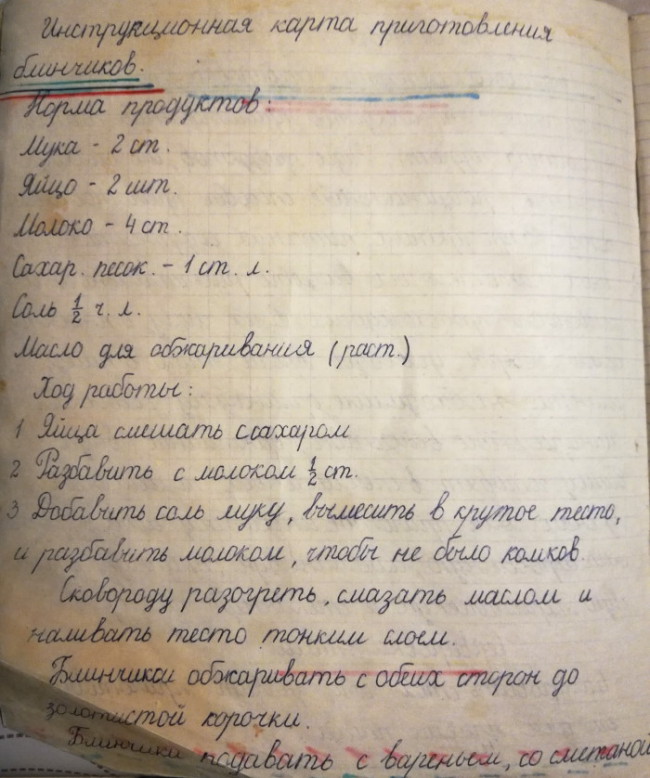 Инструкционная карта приготовления
блинчиков.
Норма продуктов:
Мука - 2 ст.
Яйцо - 2 шт.
Молоко - 4 ст.
Сахар. песок. - 1 ст. л.
Соль 1/2 ч. л.
Масло для обжаривания (раст.)
Ход работы:
1 Яйца смешать с сахаром
2 Разбавить с молоком 1/2 ст.
3 Добавить соль муку, вымесить в крутое тесто,
и разбавить молоком, чтобы не было комков.
Сковороду разогреть, смазать маслом и
наливать тесто тонким слоем.
Блинчики обжаривать с обеих сторон до
золотистой корочки.
Блинчики подавать с вареньем, со сметаной